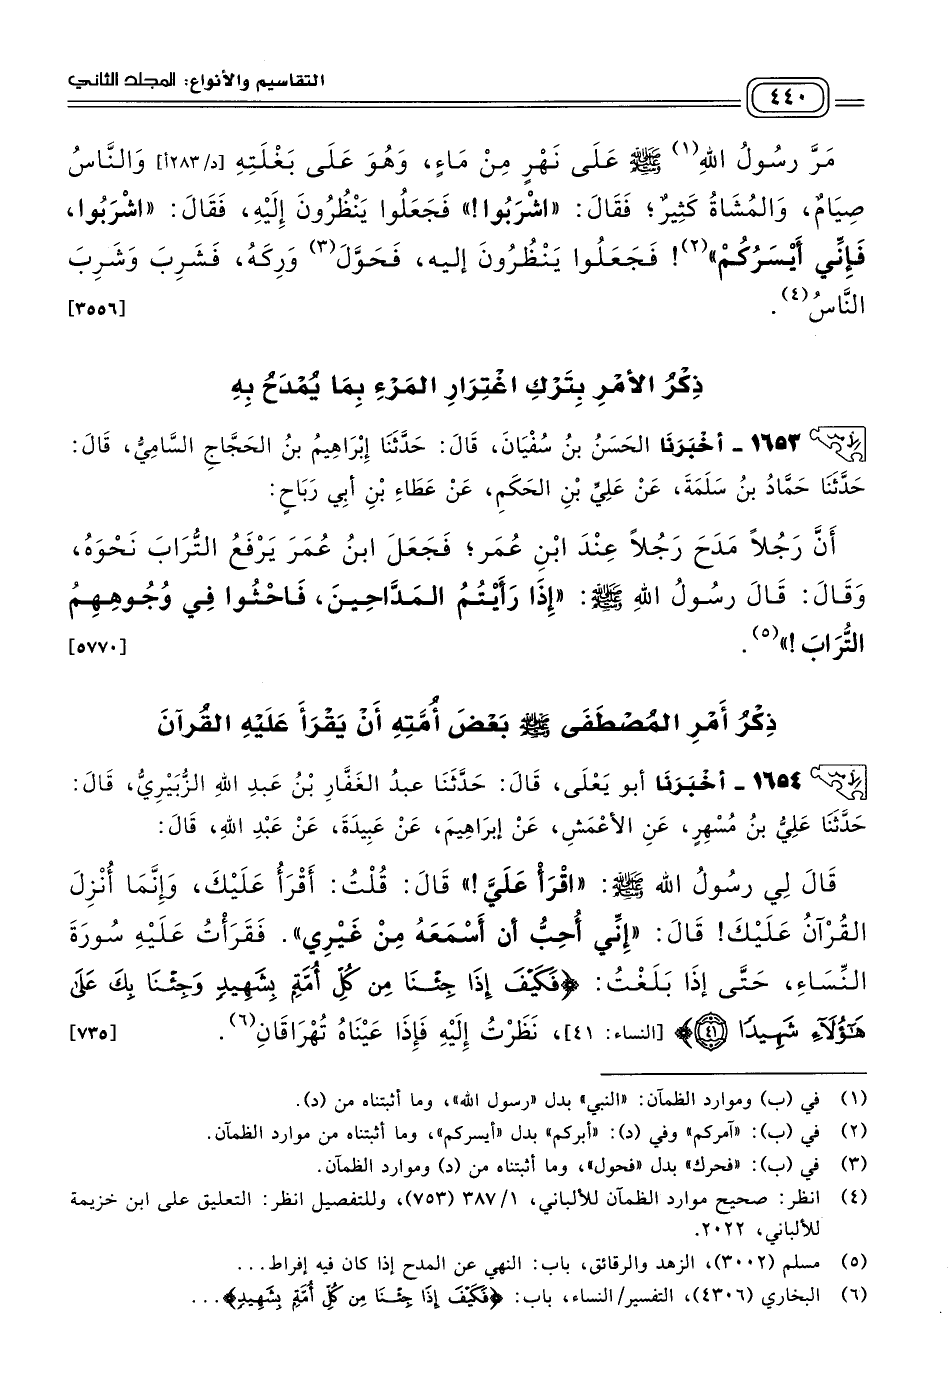 التقاسيم والأنواع: المجلد الثاني
٤٤٠
مَرَّ رسولُ اللهِ(١) ﷺ عَلَى نَهْرٍ مِنْ مَاءٍ، وَهُوَ عَلَى بَغْلَتِهِ [د/٢٨٣أ] وَالنَّاسُ
صِيَامٌ، وَالمُشَاةُ كَثِيرٌ؛ فَقَالَ: «اشْرَبُوا!» فَجَعَلُوا يَنْظُرُونَ إِلَيْهِ، فَقَالَ: «اشْرَبُوا،
فَإِنِّي أَيْسَرُكُمْ»(٢)! فَجَعَلُوا يَنْظُرُونَ إليه، فَحَوَّلَ(٣) وَرِكَهُ، فَشَرِبَ وَشَرِبَ
النَّاسُ(٤). [٣٥٥٦]
ذِكْرُ الأمْرِ بِتَرْكِ اغْتِرَارِ المَرْءِ بِمَا يُمْدَحُ بِهِ
١٦٥٣ ـ أخْبَرَنَا الحَسَنُ بنُ سُفْيَانَ، قَالَ: حَدَّثَنَا إبْرَاهِيمُ بنُ الحَجَّاجِ السَّامِيُّ، قَالَ:
حَدَّثَنَا حَمَّادُ بنُ سَلَمَةَ، عَنْ عَلِيِّ بْنِ الحَكَمِ، عَنْ عَطَاءِ بْنِ أبي رَبَاحٍ:
أَنَّ رَجُلاً مَدَحَ رَجُلاً عِنْدَ ابْنِ عُمَر؛ فَجَعَلَ ابنُ عُمَرَ يَرْفَعُ التُّرَابَ نَحْوَهُ،
وَقَالَ: قَالَ رسُولُ اللهِ ﷺ: «إِذَا رَأَيْتُمُ المَدَّاحِينَ، فَاحْثُوا فِي وُجُوهِهِمُ
التُّرَابَ!»(٥). [٥٧٧٠]
ذِكْرُ أَمْرِ المُصْطَفَى ﷺ بَعْضَ أُمَّتِهِ أَنْ يَقْرَأَ عَلَيْهِ القُرآنَ
١٦٥٤ ـ أخْبَرَنَا أبو يَعْلَى، قَالَ: حَدَّثَنَا عبدُ الغَفَّارِ بْنُ عَبدِ اللهِ الزُّبَيْرِيُّ، قَالَ:
حَدَّثَنَا عَلِيُّ بنُ مُسْهِرٍ، عَنِ الأعْمَشِ، عَنْ إبرَاهِيمَ، عَنْ عَبِيدَةَ، عَنْ عَبْدِ اللهِ، قَالَ:
قَالَ لِي رسُولُ الله ﷺ: «اقْرَأْ عَلَيَّ!» قَالَ: قُلْتُ: أَقْرَأُ عَلَيْكَ، وَإِنَّمَا أُنْزِلَ
القُرْآنُ عَلَيْكَ! قَالَ: «إِنِّي أُحِبُّ أن أَسْمَعَهُ مِنْ غَيْرِي». فَقَرَأْتُ عَلَيْهِ سُورَةَ
النِّسَاءِ، حَتَّى إذَا بَلَغْتُ: ﴿فَكَيْفَ إِذَا جِئْنَا مِن كُلِّ أُمَّةٍ بِشَهِيدٍ وَجِئْنَا بِكَ عَلَى
هَٰٓؤُلَآءِ شَهِيدًا ٤١﴾ [النساء: ٤١]، نَظَرْتُ إِلَيْهِ فَإِذَا عَيْنَاهُ تُهْرَاقَانِ(٦). [٧٣٥]
(١) في (ب) وموارد الظمآن: «النبي» بدل «رسول الله»، وما أثبتناه من (د).
(٢) في (ب): «آمركم» وفي (د): «أبركم» بدل «أيسركم»، وما أثبتناه من موارد الظمآن.
(٣) في (ب): «فحرك» بدل «فحول»، وما أثبتناه من (د) وموارد الظمآن.
(٤) انظر: صحيح موارد الظمآن للألباني، ٣٨٧/١ (٧٥٣)، وللتفصيل انظر: التعليق على ابن خزيمة
للألباني، ٢٠٢٢.
(٥) مسلم (٣٠٠٢)، الزهد والرقائق، باب: النهي عن المدح إذا كان فيه إفراط...
(٦) البخاري (٤٣٠٦)، التفسير/النساء، باب: ﴿فَكَيْفَ إِذَا جِئْنَا مِن كُلِّ أُمَّةٍ بِشَهِيدٍ﴾...